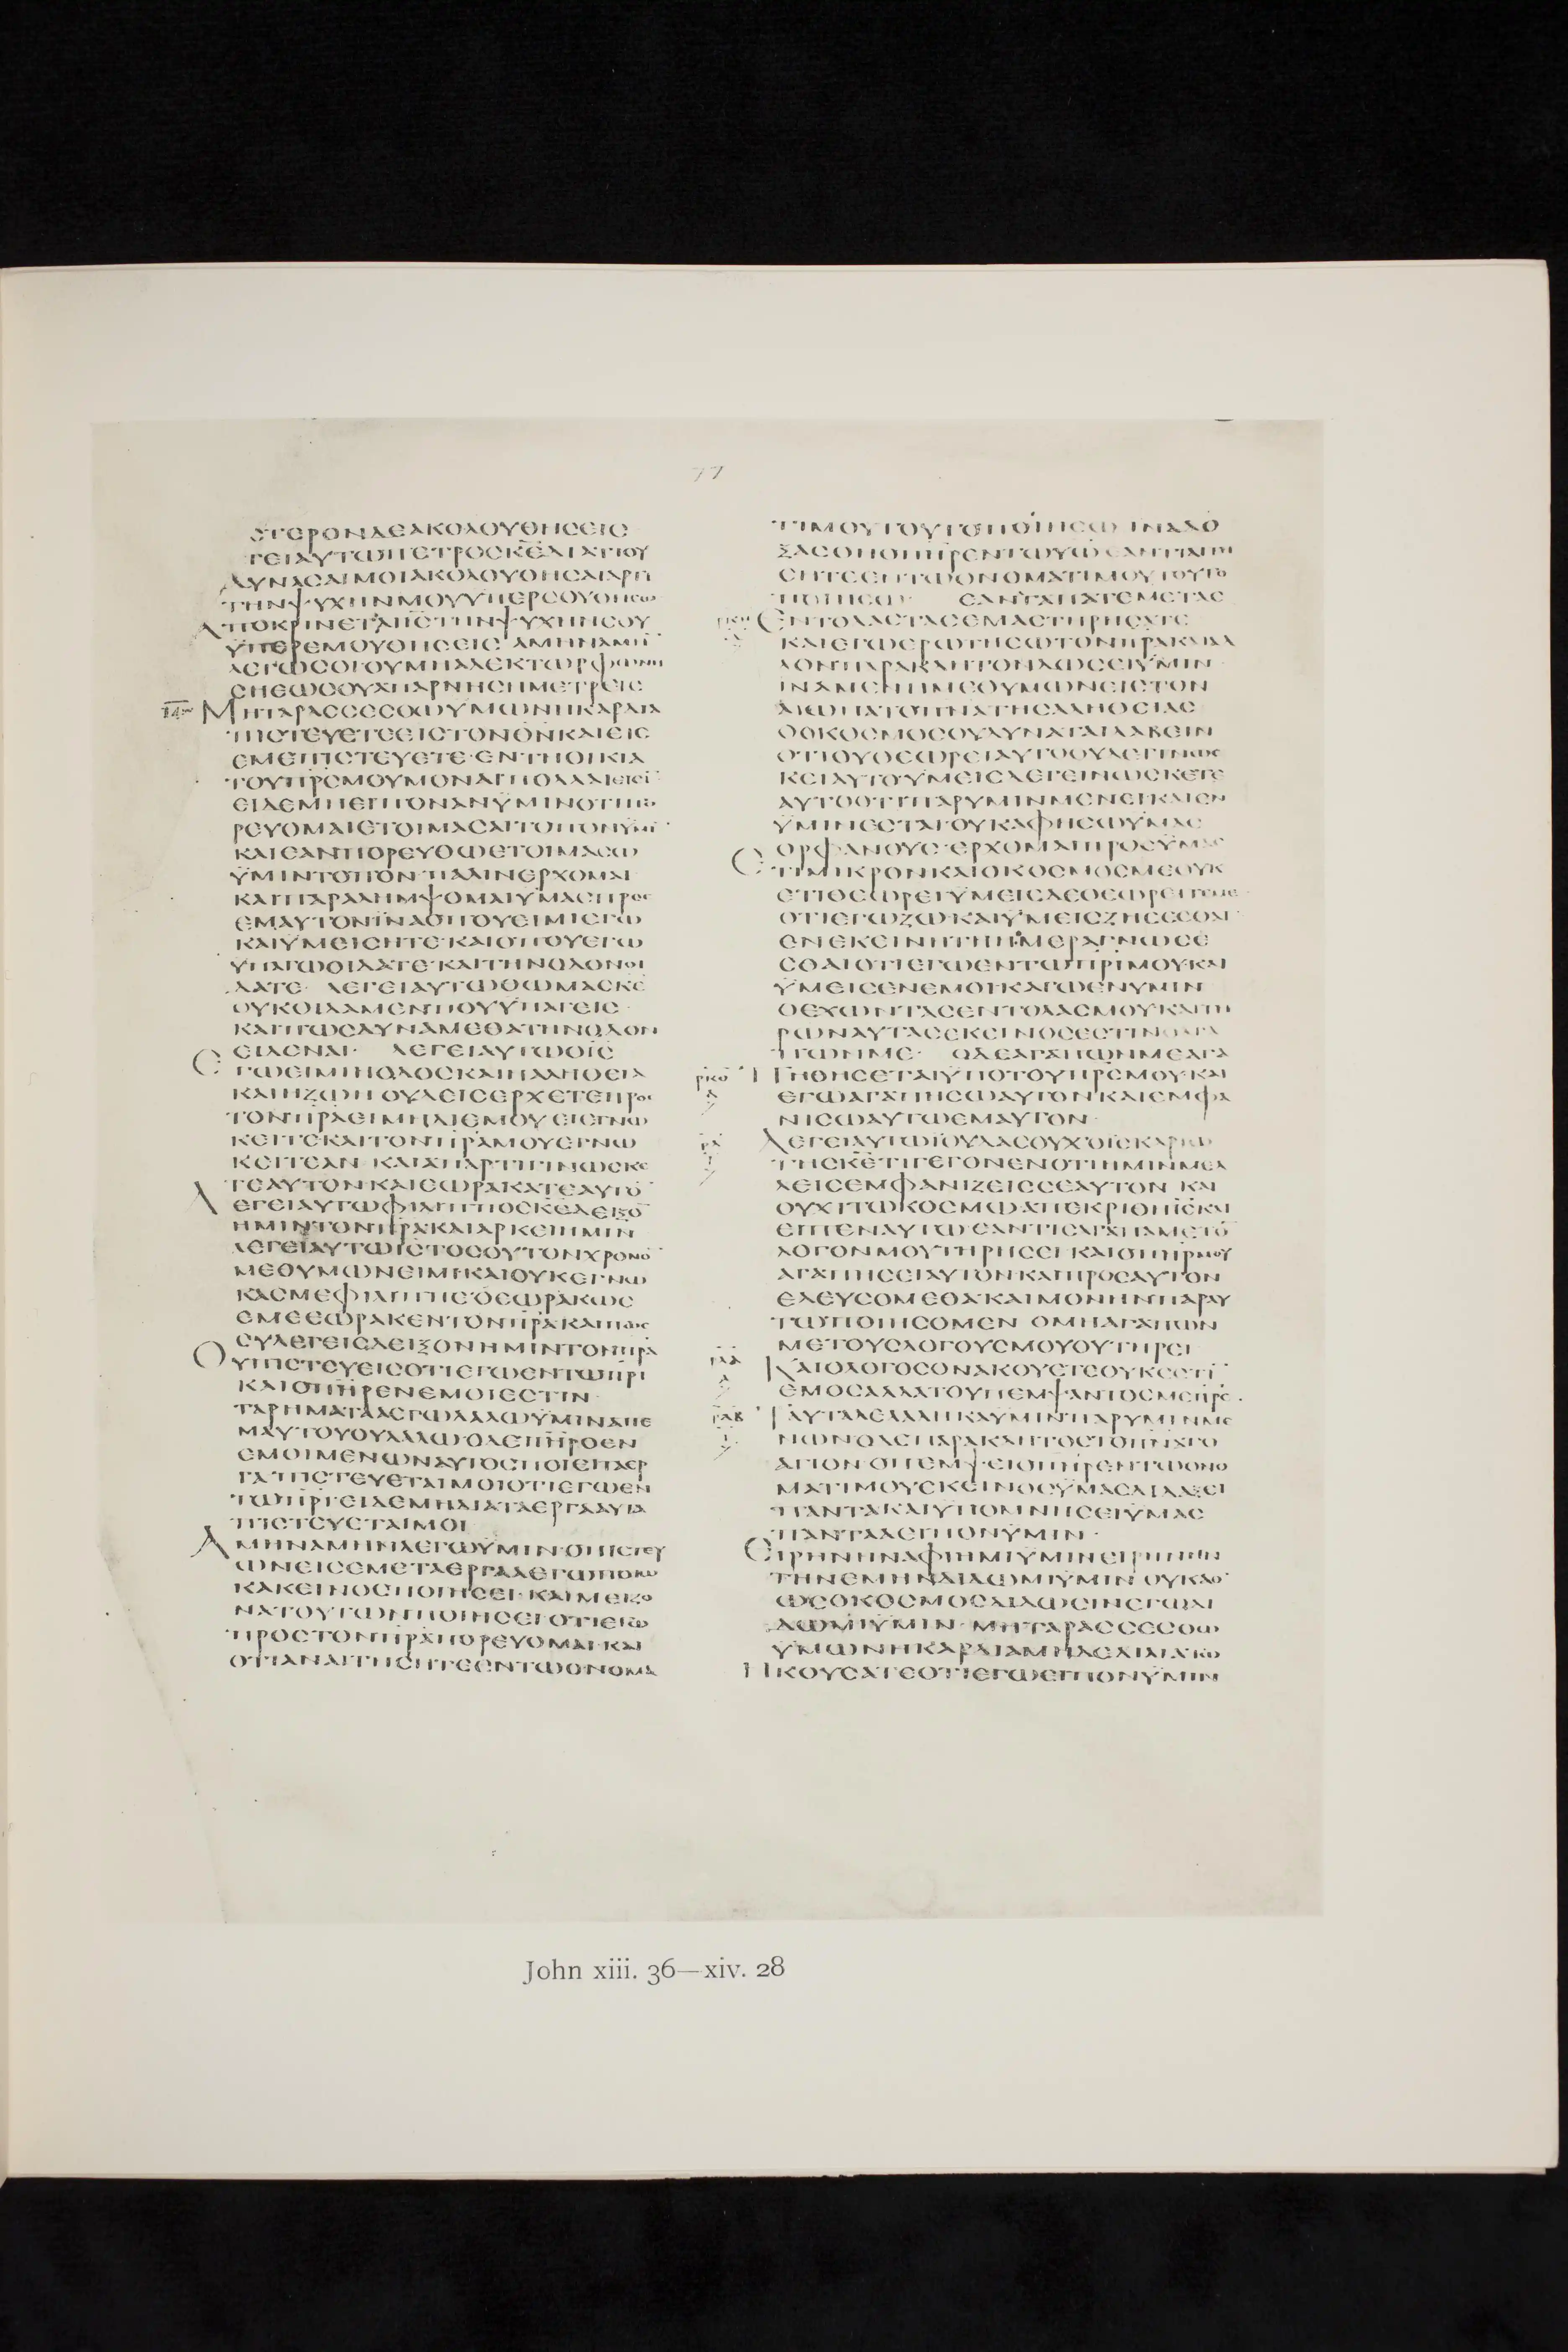 77
ϹΤΕΡΟΝΔΕΑΚΟΛΟΥΘΗϹΕΙϹ
ΓΕΙΑΥΤΩΠΕΤΡΟϹΚΕΔΙΑΤΙΟΥ
ΔΥΝΑϹΑΙΜΟΙΑΚΟΛΟΥΘΗϹΑΙΑΡΤΙ
ΤΗΝΨΥΧΗΝΜΟΥΥΠΕΡϹΟΥΘΗϹΩ
ΑΠΟΚΡΙΝΕΤΑΙΙϹΤΗΝΨΥΧΗΝϹΟΥ
ΫΠΕΡΕΜΟΥΘΗϹΕΙϹ ΑΜΗΝΑΜΗ̅
ΛΕΓΩϹΟΙΟΥΜΗΑΛΕΚΤΩΡΦΩΝΗ
ϹΗΕΩϹΟΥΑΠΑΡΝΗϹΗΜΕΤΡΕΙϹ
14 ΜΗΤΑΡΑϹϹΕϹΘΩΫΜΩΝΗΚΑΡΔΙΑ
ΠΙϹΤΕΥΕΤΕΕΙϹΤΟΝΘ̅Ν̅ΚΑΙΕΙϹ
ΕΜΕΠΙϹΤΕΥΕΤΕ·ΕΝΤΗΟΙΚΙΑ
ΤΟΥΠ̅Ρ̅Ϲ̅ΜΟΥΜΟΝΑΙΠΟΛΛΑΙΕΙϹΙ̅
ΕΙΔΕΜΗΕΙΠΟΝΑΝΫΜΙΝΟΤΙΠΟ
ΡΕΥΟΜΑΙΕΤΟΙΜΑϹΑΙΤΟΠΟΝΫΜΙ̅
ΚΑΙΕΑΝΠΟΡΕΥΘΩΕΤΟΙΜΑϹΩ
ΫΜΙΝΤΟΠΟΝ·ΠΑΛΙΝΕΡΧΟΜΑΙ
ΚΑΙΠΑΡΑΛΗΜΨΟΜΑΙΫΜΑϹΠΡΟϹ
ΕΜΑΥΤΟΝΪΝΑΟΠΟΥΕΙΜΙΕΓΩ
ΚΑΙΫΜΕΙϹΗΤΕ·ΚΑΙΟΠΟΥΕΓΩ
ΥΠΑΓΩΟΙΔΑΤΕ·ΚΑΙΤΗΝΟΔΟΝΟΙ
ΔΑΤΕ· ΛΕΓΕΙΑΥΤΩΘΩΜΑϹΚΕ
ΟΥΚΟΙΔΑΜΕΝΠΟΥΫΠΑΓΕΙϹ·
ΚΑΙΠΩϹΔΥΝΑΜΕΘΑΤΗΝΟΔΟΝ
ΕΙΔΕΝΑΙ· ΛΕΓΕΙΑΥΤΩΟΙ̅Ϲ̅
ΕΓΩΕΙΜΙΗΟΔΟϹΚΑΙΗΑΛΗΘΕΙΑ
ΚΑΙΗΖΩΗ ΟΥΔΕΙϹΕΡΧΕΤΕΠΡΟϹ
ΤΟΝΠ̅Ρ̅Α̅ΕΙΜΗΔΙΕΜΟΥ ΕΙΕΓΝΩ
ΚΕΙΤΕΚΑΙΤΟΝΠ̅Ρ̅Α̅ΜΟΥΕΓΝΩ
ΚΕΙΤΕΑΝ·ΚΑΙΑΠΑΡΤΙΓΙΝΩϹΚΕ
ΤΕΑΥΤΟΝΚΑΙΕΩΡΑΚΑΤΕΑΥΤΟ̅
ΛΕΓΕΙΑΥΤΩΦΙΛΙΠΠΟϹΚΕΔΕΙΞΟ̅
ΗΜΙΝΤΟΝΠ̅Ρ̅Α̅ΚΑΙΑΡΚΕΙΗΜΙΝ
ΛΕΓΕΙΑΥΤΩΙ̅Ϲ̅ΤΟϹΟΥΤΟΝΧΡΟΝΟ̅
ΜΕΘΥΜΩΝΕΙΜΙ·ΚΑΙΟΥΚΕΓΝΩ
ΚΑϹΜΕΦΙΛΙΠΠΕ·ΟΕΩΡΑΚΩϹ
ΕΜΕΕΩΡΑΚΕΝΤΟΝΠ̅Ρ̅Α̅ΚΑΙΠΩϹ
ϹΥΛΕΓΕΙϹΔΕΙΞΟΝΗΜΙΝΤΟΝΠ̅Ρ̅Α̅
ΟΥΠΙϹΤΕΥΕΙϹΟΤΙΕΓΩΕΝΤΩΠ̅Ρ̅Ι̅
ΚΑΙΟΠ̅Η̅Ρ̅ΕΝΕΜΟΙΕϹΤΙΝ·
ΤΑΡΗΜΑΤΑΑΕΓΩΛΑΛΩΫΜΙΝΑΠΕ
ΜΑΥΤΟΥΟΥΛΑΛΩ·ΟΔΕΠ̅Η̅Ρ̅ΟΕΝ
ΕΜΟΙΜΕΝΩΝΑΥΤΟϹΠΟΙΕΙΤΑΕΡ
ΓΑ·ΠΙϹΤΕΥΕΤΑΙΜΟΙΟΤΙΕΓΩΕΝ
ΤΩΠ̅Ρ̅Ι̅·ΕΙΔΕΜΗΔΙΑΤΑΕΡΓΑΑΥΤΑ
ΠΙϹΤΕΥΕΤΑΙΜΟΙ
ΑΜΗΝΑΜΗΝΛΕΓΩΫΜΙΝ·ΟΠΙϹΤΕΥ
ΩΝΕΙϹΕΜΕΤΑΕΡΓΑΑΕΓΩΠΟΙΩ
ΚΑΚΕΙΝΟϹΠΟΙΗϹΕΙ·ΚΑΙΜΕΙΖΟ
ΝΑΤΟΥΤΩΝΠΟΙΗϹΕΙ·ΟΤΙΕΓΩ
ΠΡΟϹΤΟΝΠ̅Ρ̅Α̅ΠΟΡΕΥΟΜΑΙ·ΚΑΙ
ΟΤΙΑΝΑΙΤΗϹΗΤΕΕΝΤΩΟΝΟΜΑ
ΤΙΜΟΥΤΟΥΤΟΠΟΙΗϹΩ ΙΝΑΔΟ
ΞΑϹΘΗΟΠ̅Η̅Ρ̅ΕΝΤΩΥ̅Ω̅·ΕΑΝΤΙΑΙΤΗ
ϹΗΤΕΕΝΤΩΟΝΟΜΑΤΙΜΟΥΤΟΥΤΟ
ΠΟΙΗϹΩ· ΕΑΝΑΓΑΠΑΤΕΜΕΤΑϹ
ΕΝΤΟΛΑϹΤΑϹΕΜΑϹΤΗΡΗϹΑΤΕ
ΚΑΙΕΓΩΕΡΩΤΗϹΩΤΟΝΠ̅Ρ̅Α̅ΚΑΙΑΛ
ΛΟΝΠΑΡΑΚΛΗΤΟΝΔΩϹΕΙΫΜΙΝ
ΙΝΑΜΕΝΗΜΕΘΥΜΩΝΕΙϹΤΟΝ
ΑΙΩΝΑΤΟΠ̅Ν̅Α̅ΤΗϹΑΛΗΘΕΙΑϹ
ΟΟΚΟϹΜΟϹΟΥΔΥΝΑΤΑΙΛΑΒΕΙΝ
ΟΤΙΟΥΘΕΩΡΕΙΑΥΤΟΟΥΔΕΓΙΝΩϹ
ΚΕΙΑΥΤΟΫΜΕΙϹΔΕΓΕΙΝΩϹΚΕΤΕ
ΑΥΤΟΟΤΙΠΑΡΥΜΙΝΜΕΝΕΙΚΑΙΕΝ
ΫΜΙΝΕϹΤΑΙ·ΟΥΚΑΦΗϹΩΫΜΑϹ
ΟΡΦΑΝΟΥϹ·ΕΡΧΟΜΑΙΠΡΟϹΫΜΑϹ
ΕΤΙΜΙΚΡΟΝΚΑΙΟΚΟϹΜΟϹΜΕΟΥΚ
ΕΤΙΘΕΩΡΕΙΫΜΕΙϹΔΕΘΕΩΡΕΙΤΕΜΕ
ΟΤΙΕΓΩΖΩ·ΚΑΙΫΜΕΙϹΖΗϹΕϹΘΑΙ·
ΕΝΕΚΕΙΝΗΤΗΗΜΕΡΑΓΝΩϹΕ
ϹΘΑΙΟΤΙΕΓΩΕΝΤΩΠ̅Ρ̅Ι̅ΜΟΥ·ΚΑΙ
ΫΜΕΙϹΕΝΕΜΟΙ·ΚΑΓΩΕΝΥΜΙΝ
ΟΕΧΩΝΤΑϹΕΝΤΟΛΑϹΜΟΥΚΑΙΤΗ
ΡΩΝΑΥΤΑϹΕΚΕΙΝΟϹΕϹΤΙΝΟΑΓΑ
ΠΩΝΜΕ· ΟΔΕΑΓΑΠΩΝΜΕΑΓΑ
ΡΚΘ ΠΗΘΗϹΕΤΑΙΫΠΟΤΟΥΠ̅Ρ̅Ϲ̅ΜΟΥ·ΚΑΙ
ΕΓΩΑΓΑΠΗϹΩΑΥΤΟΝΚΑΙΕΜΦΑ
ΝΙϹΩΑΥΤΩΕΜΑΥΤΟΝ·
ΡΛ ΛΕΓΕΙΑΥΤΩΪΟΥΔΑϹΟΥΧΟΪϹΚΑΡΙΩ
ΤΗϹΚΕΤΙΓΕΓΟΝΕΝΟΤΙΗΜΙΝΜΕΛ
ΛΕΙϹΕΜΦΑΝΙΖΕΙϹϹΕΑΥΤΟΝ ΚΑΙ
ΟΥΧΙΤΩΚΟϹΜΩΑΠΕΚΡΙΘΗΙ̅Ϲ̅ΚΑΙ
ΕΙΠΕΝΑΥΤΩ·ΕΑΝΤΙϹΑΓΑΠΑΜΕΤΟ̅
ΛΟΓΟΝΜΟΥΤΗΡΗϹΕΙ·ΚΑΙΟΠ̅Η̅Ρ̅ΜΟΥ
ΑΓΑΠΗϹΕΙΑΥΤΟΝ·ΚΑΙΠΡΟϹΑΥΤΟΝ
ΕΛΕΥϹΟΜΕΘΑ·ΚΑΙΜΟΝΗΝΠΑΡΑΥ
ΤΩΠΟΙΗϹΟΜΕΝ ΟΜΗΑΓΑΠΩΝ
ΜΕΤΟΥϹΛΟΓΟΥϹΜΟΥΟΥΤΗΡΕΙ
ΡΛΑ ΚΑΙΟΛΟΓΟϹΟΝΑΚΟΥΕΤΕΟΥΚΕϹΤΙ̅
ΕΜΟϹΑΛΛΑΤΟΥΠΕΜΨΑΝΤΟϹΜΕΠ̅Ρ̅Ϲ̅·
ΡΛΒ ΤΑΥΤΑΛΕΛΑΛΗΚΑΥΜΙΝΠΑΡΥΜΙΝΜΕ
ΝΩΝ·ΟΔΕΠΑΡΑΚΛΗΤΟϹΤΟΠ̅Ν̅Α̅ΤΟ
ΑΓΙΟΝ ΟΠΕΜΨΕΙΟΠ̅Η̅Ρ̅ΕΝΤΩΟΝΟ
ΜΑΤΙΜΟΥΕΚΕΙΝΟϹΫΜΑϹΔΙΔΑΞΕΙ
ΠΑΝΤΑΚΑΙΥΠΟΜΝΗϹΕΙΫΜΑϹ
ΠΑΝΤΑΑΕΙΠΟΝΫΜΙΝ·
ΕΙΡΗΝΗΝΑΦΙΗΜΙΫΜΙΝΕΙΡΗΝΗΝ
ΤΗΝΕΜΗΝΔΙΔΩΜΙΫΜΙΝ ΟΥΚΑΘ
ΩϹΟΚΟϹΜΟϹΔΙΔΩϹΙΝΕΓΩΔΙ
ΔΩΜΙΫΜΙΝ·ΜΗΤΑΡΑϹϹΕϹΘΩ
ΫΜΩΝΗΚΑΡΔΙΑΜΗΔΕΔΙΛΙΑΤΩ
ΗΚΟΥϹΑΤΕΟΤΙΕΓΩΕΙΠΟΝΫΜΙΝ
John xiii. 36—xiv. 28